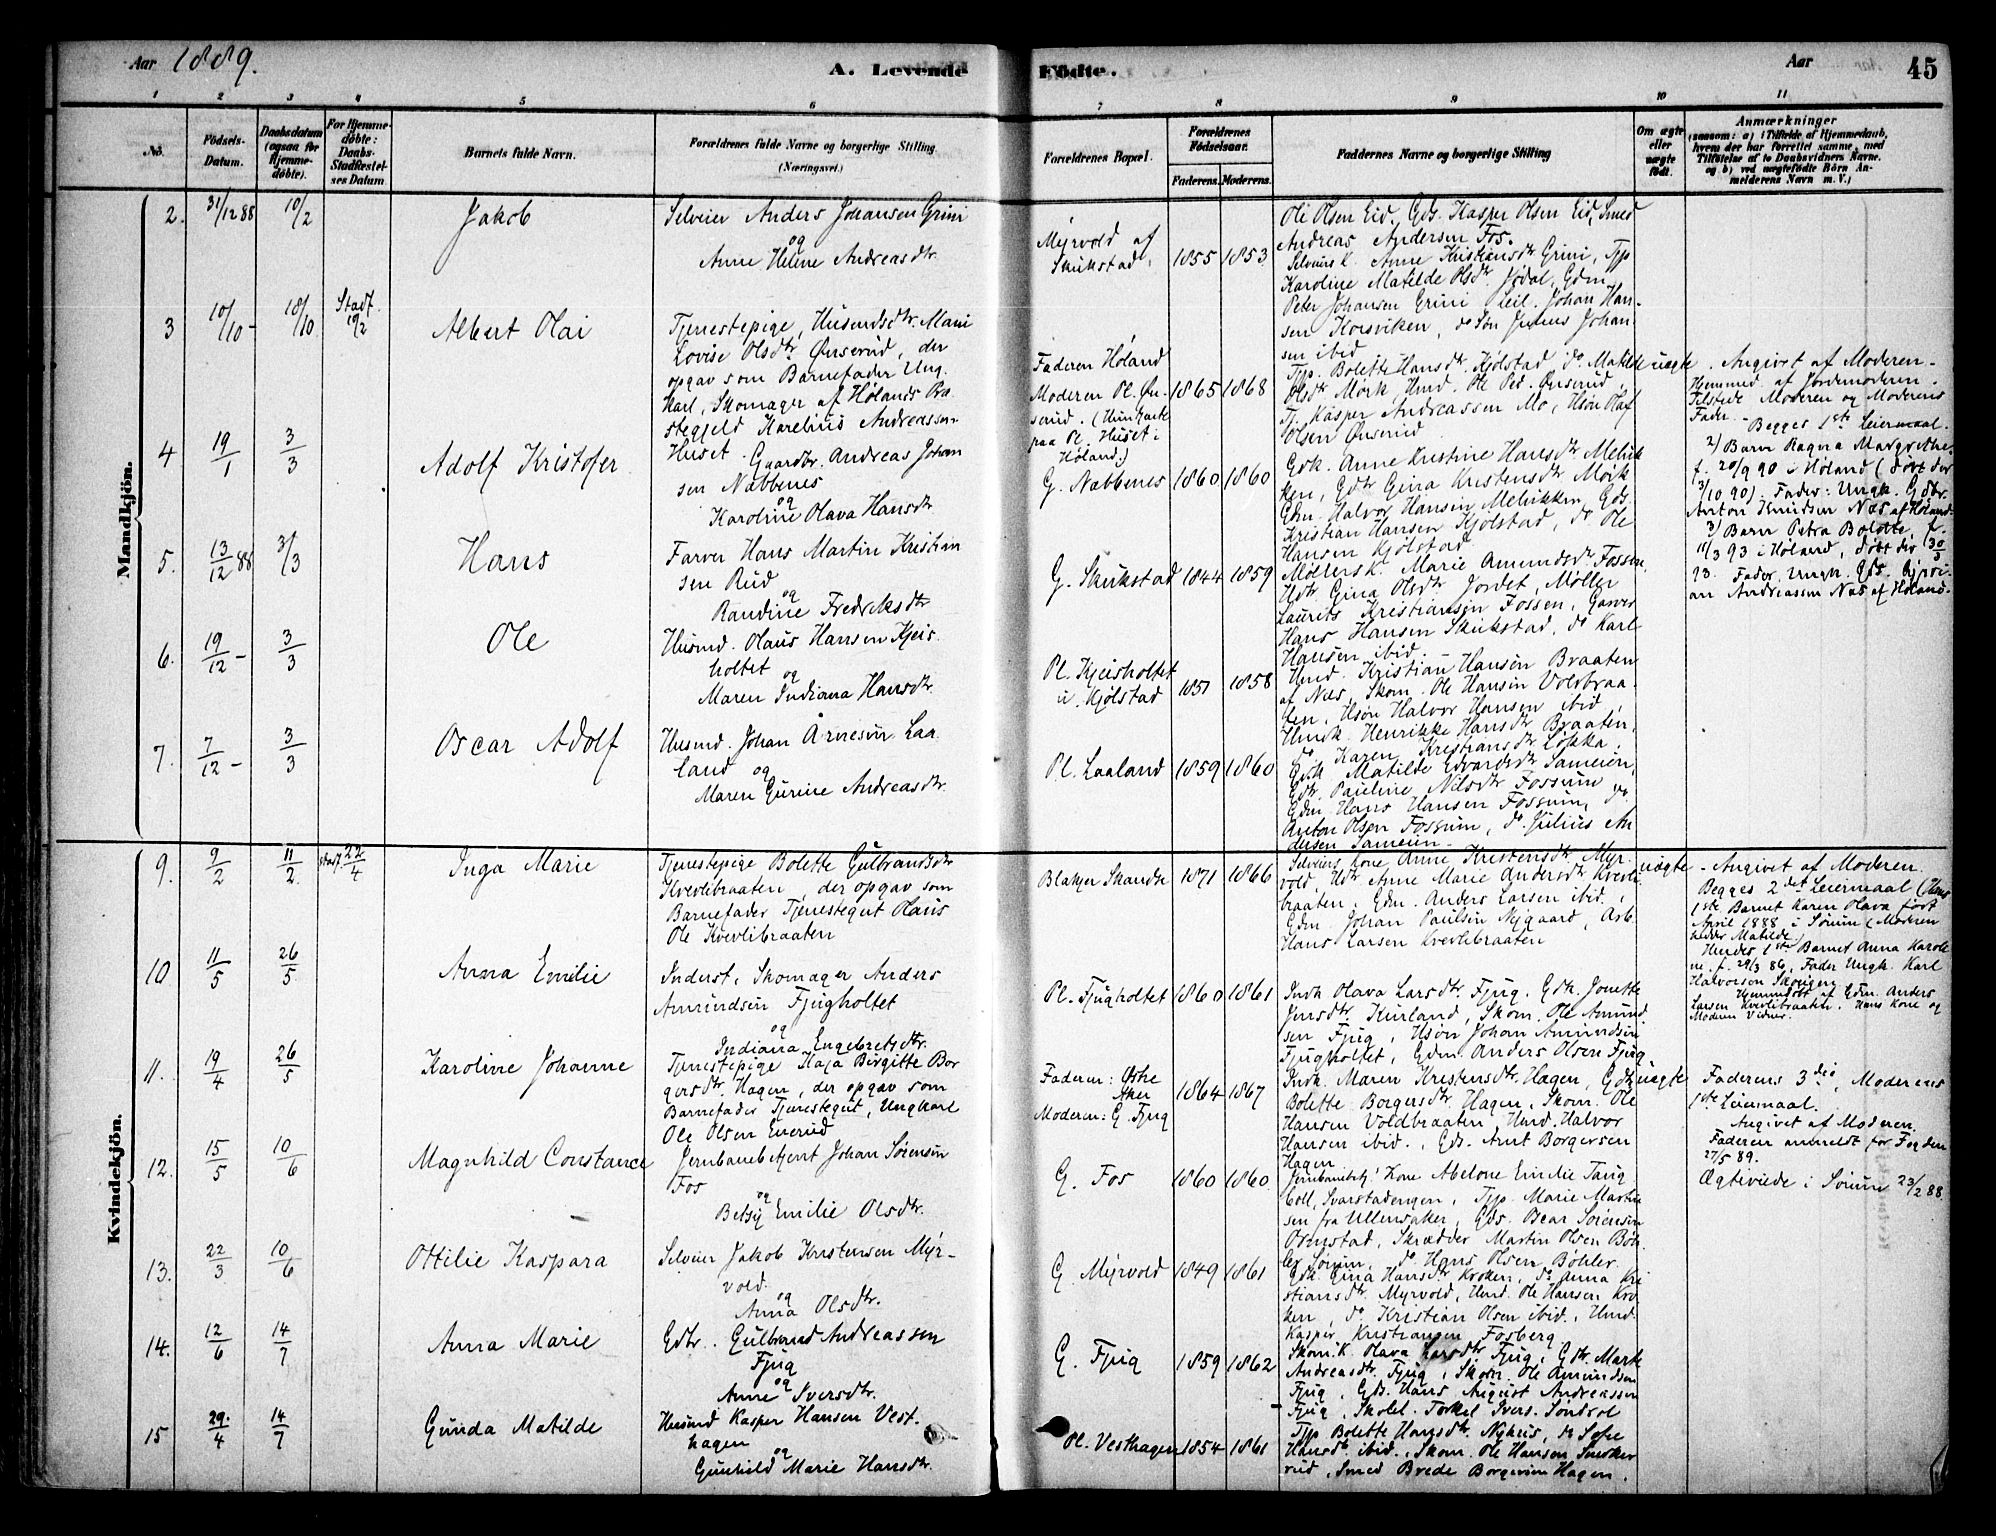 Aar 1889.
A. Levende Födte.
Aar
45
1 2 3 4 5 6 7 8 9 10 11
No.
Födsels-Datum.
Daabsdatum (ogsaa for Hjemme-döbte).
For Hjemme-döbte: Daabs-Stadfæstel-ses Datum
Barnets fulde Navn.
Forældrenes fulde Navne og borgerlige Stilling
(Næringsvei.)
Forældrenes Bopæl.
Forældrenes Födselsaar.
Faderens. Moderens.
Faddernes Navne og borgerlige Stilling
Om ægte eller uægte födt.
Anmærkninger
(saasom: a) i Tilfælde af Hjemmedaab,
hvem der har forrettet samme, med
Tilföielse af to Daabsvidners Navne,
og b) ved uægtefödte Börn An-
melderens Navn m. V.)
Mandkjön.
2. 31/12 88 10/2 Jakob
Selveier Anders Johansen Grini
og
Anne Helene Andreasdtr.
Myrvold af
Skukstad.
1855 1853
Ole Olsen Eid, Gds. Kasper Olsen Eid, Smed
Andreas Andersen Fos.
3 10/10 - 18/10 Stadf. 10/2 Albert Olai
Tjenestepige, Husmdsdtr. Mari
Lovise Olsdtr. Ønserud, der
opgav som Barnefader Ung-
karl, Skomager af Hølands Præ
stegjeld Karelius Andreassen
Huset.
Faderen Høland
Moderen Pl. Øn-
serud.
paa Pl. Huset i
Høland.)
1865 1868
Selveiers K. Anne Kristiansdtr Grini, Tjp
Karoline Matilde Olsdtr. Jødal, Gdm.
Peter Johansen Grini Leil. Johan Han-
sen Korsviken, do Søn Julius Johan
sen ibid
Tjp. Bolette Hansdtr. Kjølstad do Matilde
Olsdtr. Mørk, Hmd. Ole Ped. Ønserud,
Tj. Kasper Andreassen Mo, Hsøn Olaf
Olsen Ønserud
uægte
Angivet af Moderen -
Hjemmed. af Jordemoderen.
Tilstede Moderen og Moderens
Fader. - Begges 1ste Leiermaal.
2) Barn Ragna Margrethe
f. 20/9 90 i Høland (døbt der
3/10 90). Fader: Ungk. Gdbr.
Anton Knudsen Næs af Høland.
3) Barn Petra Bolette, f.
11/3 93 i Høland, døbt der 30/5
93. Fader, Ungk. Gds.
an Andreassen Næs af Høland.
4 19/1 3/3 Adolf Kristofer
Gaardbr. Andreas Johan
sen Næbbenes
og
Karoline Olava Hansdtr
G. Næbbenes 1860 1860
Gdk. Anne Kristine Hansdtr Melnik
ken, Gdtr Gina Kristensdtr Mørk
Gdm. Halvor Hansen Melnikken, Gds
Kristian Hansen Kjølstad, do Ole
Hansen Kjølstad
5. 13/12 88 3/3 Hans
Farver Hans Martin Kristian
sen Rud
og
Randine Fredriksdtr
G. Skukstad 1844 1859
Møllersk. Marie Amundsdtr Fossen,
Hdtr Gina Olsdtr Jordet, Møller
Laurits Kristiansen Fossen, Garver
Hans Hansen Skukstad, do Karl
Hansen ibid.
6. 19/12 - 3/3 Ole
Husmd. Olaus Hansen Kjeis
holtet
og
Maren Indiana Hansdtr.
Pl. Kjeisholtet
u. Kjølstad
1851 1858
Hmd. Kristian Hansen Braaten
af Næs, Skom. Ole Hansen Voldbraa
ten, Hsøn Halvor Hansen ibid,
Hmdk. Henrikke Hansdtr Braaten,
do Karen Kristiansdtr Løkka.
7. 7/12 - 3/3 Oscar Adolf
Husmd. Johan Arnesen Laa
land og
Maren Gurine Andreasdtr.
Pl. Laaland 1859 1860
Gdk Matilde Edvardsdtr Sameien,
Gdtr. Pauline Nilsdtr Fossum
Gdm. Hans Hansen Fossum, do
Anton Olsen Fossum, do. Julius An
dersen Sameien -
Kvindekjön.
9. 9/2 11/2 Stadf. 22/4 Inga Marie
Tjenestepige Bolette Gulbrandsdtr
Kvevlibraaten, der opgav som
Barnefader Tjenestegut Olaus
Ole Kvevlibraaten
Blakjer Skandse 1871 1866
Selveiers Kone Anne Kristensdtr. Myr-
vold, Hdtr Anne Marie Andersdtr Kvevli
braaten, Gdm. Anders Larsen ibid.,
Gdm. Johan Paulsen Nygaard, Arb.
Hans Larsen Kvevlibraaten
uægte
- Angivet af Moderen.
Begges 2det Leiermaal (Hans
1ste Barnet Karen Olava født
April 1888 i Sørum (Moderen
heder Matilde)
Hendes 1ste Barnet Anna Karoli
ne, f. 29/3 86, Fader Ungk. Karl
Halvorsen
Hjemmedøbt af Gdm. Anders
Larsen Kvevlibraaten. Hans Kone og
Moderen Vidner.
10 11/5 26/5 Anna Emilie
Inderst, Skomager Anders
Amundsen Fjugholtet
og
Indiana Engebretsdtr.
Pl. Fjugholtet 1860 1861
Indk Olava Larsdtr. Fjug. Gdk. Jonette
Jensdtr. Kurland, Skom. Ole Amund
sen Fjug, Hsøn Johan Amundsen
Fjugholtet, Gdm. Anders Olsen Fjug.
11. 19/4 26/5 Karoline Johanne
Tjenestepige Kaja Birgitte Bor
gersdtr. Hagen, der opgav som
Barnefader Tjenestegut, Ungkarl
Ole Olsen Enerud
Faderen: Østre
Aker
Moderen: G. Fjug
1864 1867
Indk. Maren Kristensdtr. Hagen, Gdtr
Bolette Borgersdtr Hagen, Skom. Ole
Hansen Voldbraaten Hmd. Halvor
Hansen ibid., Gds. Arnt Borgersen
Hagen
uægte
Faderens 3die, Moderens
1ste Leiermaal.
Angivet af Moderen.
Faderen anmeldt for Fogden
27/5 89.
12. 15/5 10/6 Magnhild Constance
Jernbanebetjent Johan Sørensen
Fos
og
Betsy Emilie Olsdtr.
G. Fos 1860 1860
Jernbanebetj. Kone Abelone Emilie Taug
bøll, Svarstadengen, Tjp. Marie Martin
sen fra Ullensaker, Gds. Oscar Sørensen
Ormstad, Skrædder Martin Olsen Bøh
ler Sørum, do Hans Olsen Bøhler.
Ægteviede i Sørum 23/2 88
13. 22/3 10/6 Ottilie Kaspara
Selveier Jakob Kristensen Myr-
vold.
og
Anna Olsdtr.
G. Myrvold 1849 1861
Gdk. Gina Hansdtr Kroken, do Anna Kri
stiansdtr. Myrvold, Hmd. Ole Hansen Kro
ken, do Kristian Olsen ibid., Hmd.
Kasper Kristiansen Fosberg.
14. 12/6 14/7 Anna Marie
Gdbr. Gulbrand Andreassen
Fjug
og
Anne Iversdtr.
G. Fjug 1859 1862
Skom.K. Olava Larsdtr Fjug, Gdtr. Marte
Andreasdtr. Fjug, Skom. Ole Amundsen
Fjug, Gds. Hans August Andreassen
Fjug, Skolel. Torkel Ivers. Søndsol
15 29/4 14/7 Gunda Matilde
Husmd Kasper Hansen Vest-
hagen
og
Gunhild Marie Hansdtr.
Pl. Vesthagen 1854 1861
Tjp Bolette Hansdtr. Nyhus, do Sofie
Hansdtr ibid., Skom. Ole Hansen Snekke
rud, Smed Brede Borgersen Hagen.